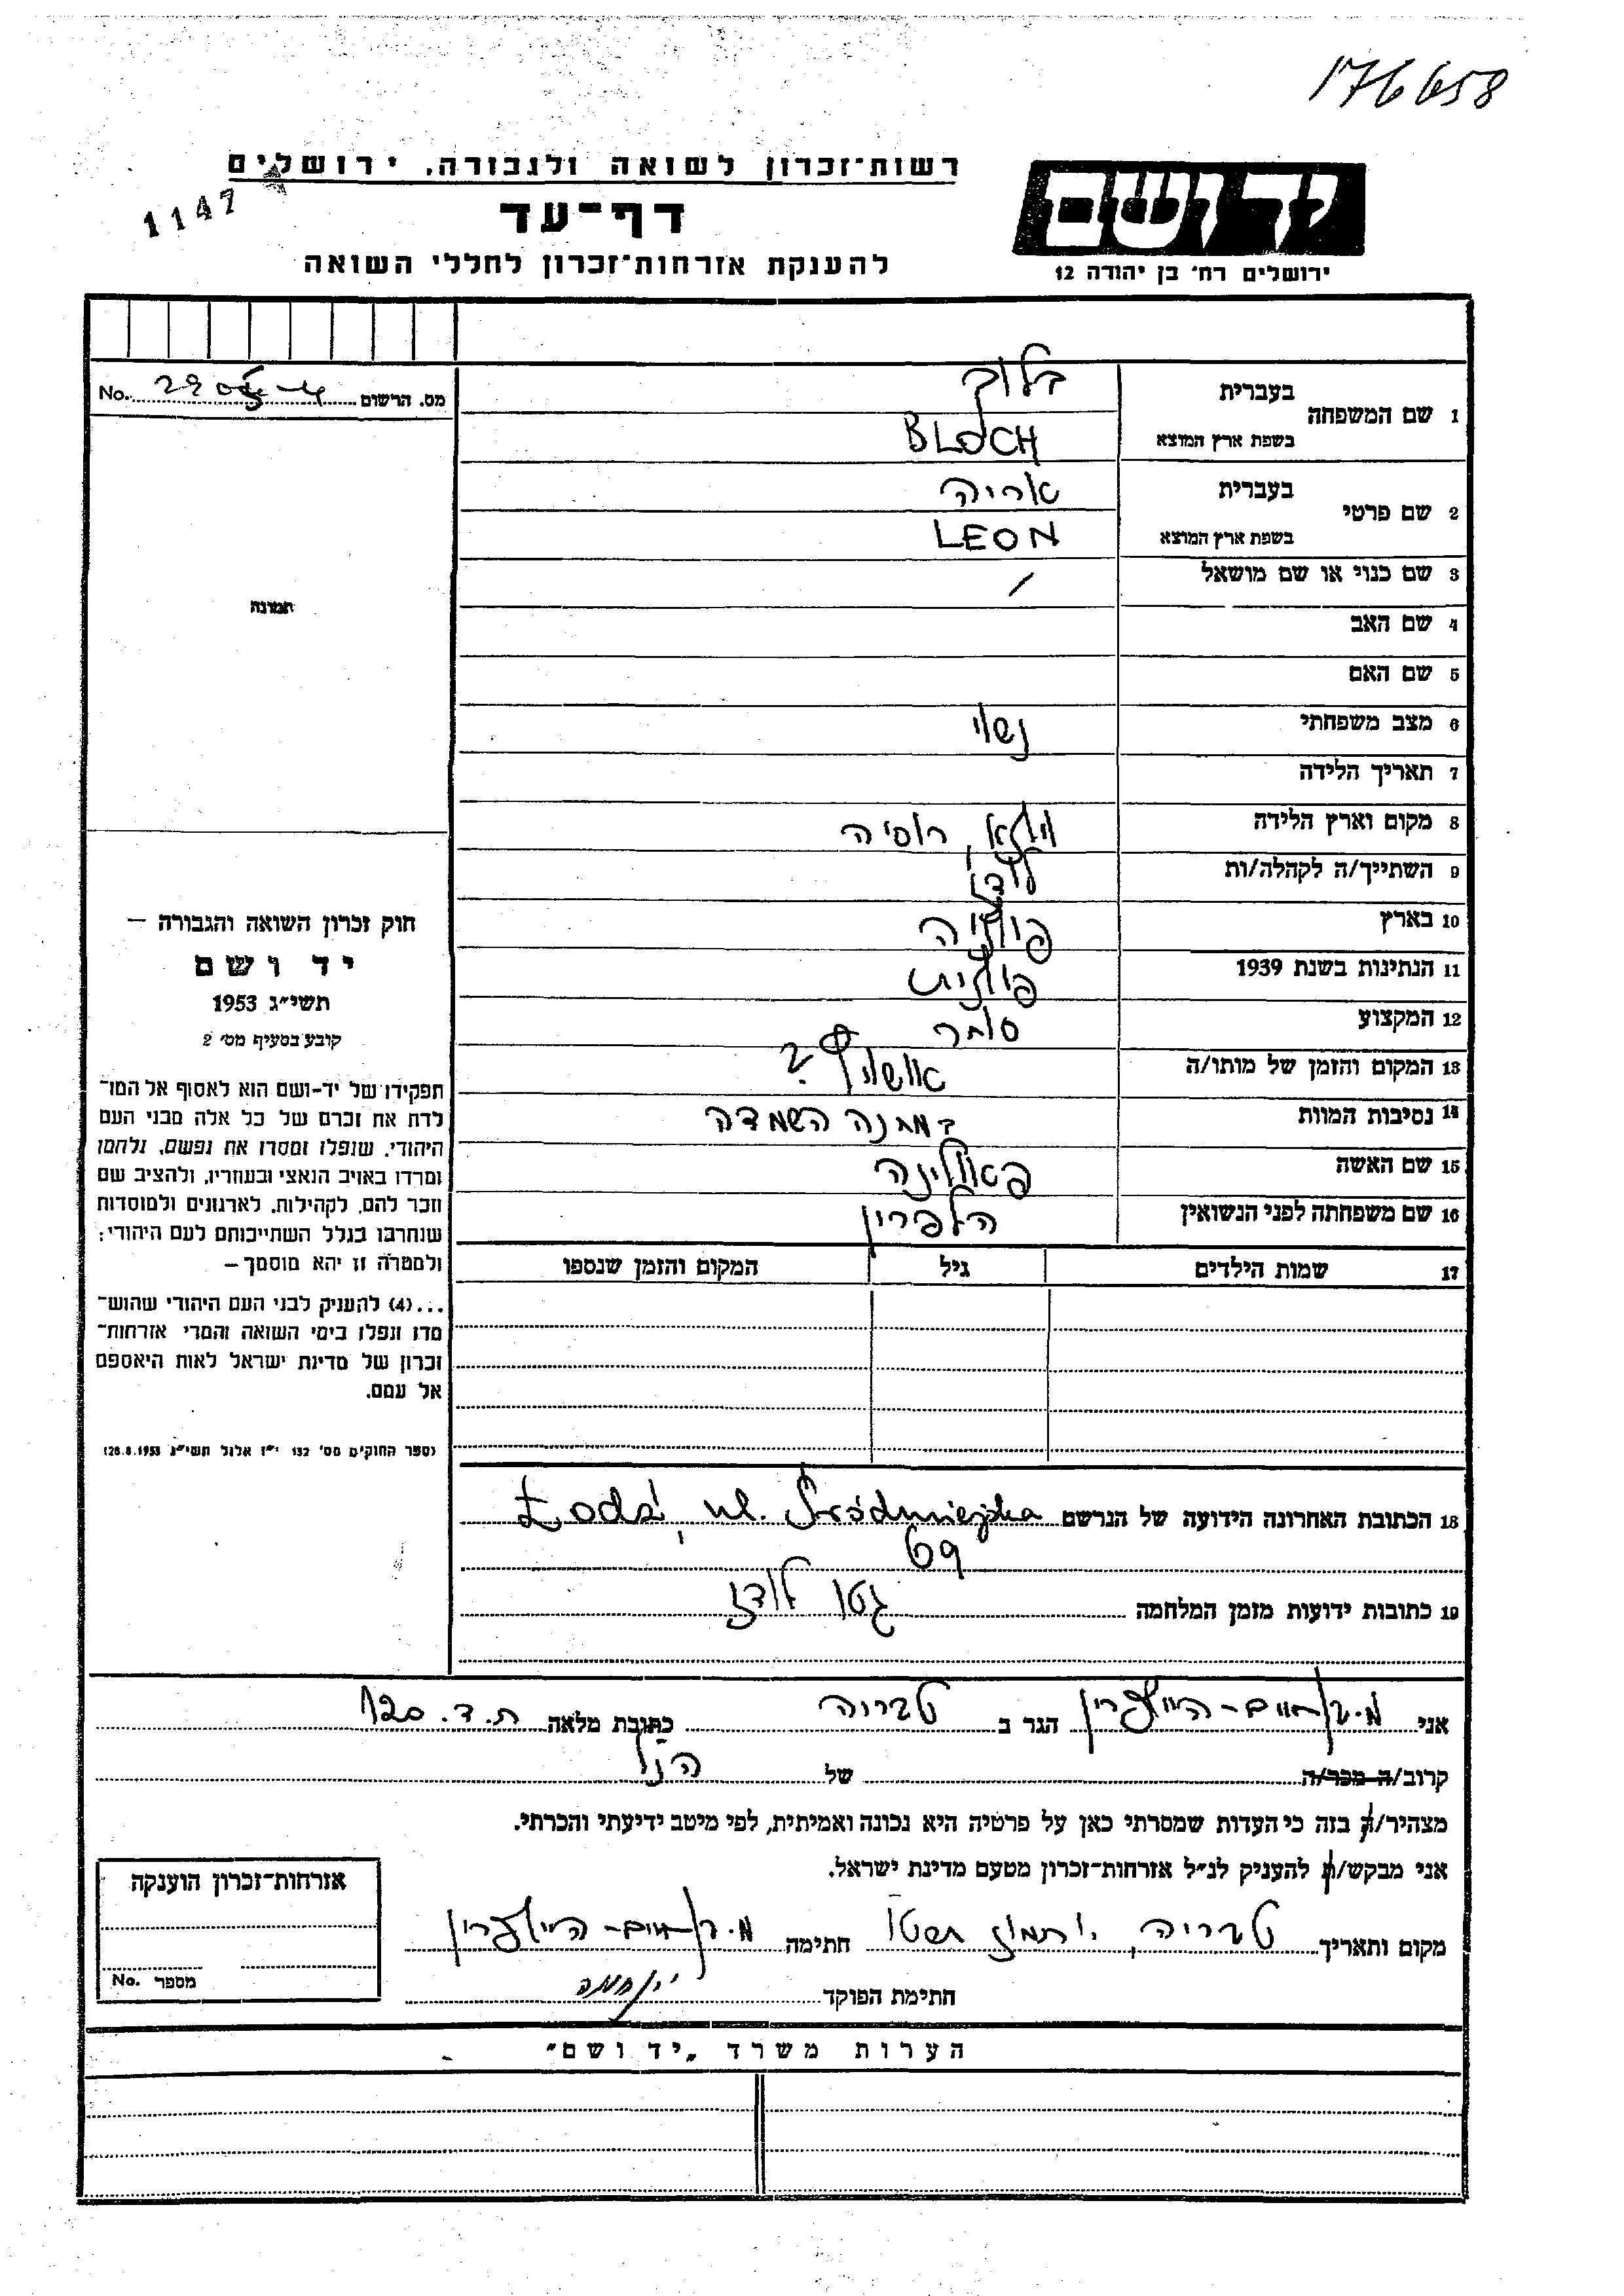 176658
רשות־זכרון לשואה ולגבורה, ירושלים
1147
דף־עד
להענקת אזרחות־זכרון לחללי השואה
יד ושם
ירושלים רח׳ בן יהודה 12
מס. הרשום No.
תמונה
1 שם המשפחה בעברית בלוך
בשפת ארץ המוצא BLOCH
2 שם פרטי בעברית אריה
בשפת ארץ המוצא LEON
3 שם כנוי או שם מושאל /
4 שם האב
5 שם האם
6 מצב משפחתי נשוי
7 תאריך הלידה
8 מקום וארץ הלידה וילנא, רוסיה
9 השתייך/ה לקהלה/ות לודז׳
10 בארץ פולניה
11 הנתינות בשנת 1939 פולנית
12 המקצוע סוחר
13 המקום והזמן של מותו/ה אושויץ ?
14 נסיבות המוות במחנה השמדה
15 שם האשה פאולינה
16 שם משפחתה לפני הנשואין הלפרין
17 שמות הילדים גיל המקום והזמן שנספו
חוק זכרון השואה והגבורה —
יד ושם
תשי״ג 1953
קובע בסעיף מס׳ 2
תפקידו של יד-ושם הוא לאסוף אל המו־
לדת את זכרם של כל אלה מבני העם
היהודי, שנפלו ומסרו את נפשם, נלחמו
ומרדו באויב הנאצי ובעוזריו, ולהציב שם
וזכר להם, לקהילות, לארגונים ולמוסדות
שנחרבו בגלל השתייכותם לעם היהודי;
ולמטרה זו יהא מוסמך —
...(4) להעניק לבני העם היהודי שהוש־
מדו ונפלו בימי השואה והמרי אזרחות־
זכרון של מדינת ישראל לאות היאספם
אל עמם.
(ספר החוקים מס׳ 132 י״ז אלול תשי״ג 28.8.1953)
18 הכתובת האחרונה הידועה של הנרשם Łódź, ul. Śródmiejska
69
19 כתובות ידועות מזמן המלחמה גטו לודז
אני הגר ב טבריה כתובת מלאה ת.ד. 120
קרוב/ה מכר/ה של הנ״ל
מצהיר/ה בזה כי העדות שמסרתי כאן על פרטיה היא נכונה ואמיתית, לפי מיטב ידיעתי והכרתי.
אני מבקש/ת להעניק לנ״ל אזרחות־זכרון מטעם מדינת ישראל.
מקום ותאריך טבריה, חתימה
חתימת הפוקד
אזרחות־זכרון הוענקה
מספר No.
הערות משרד „יד ושם״